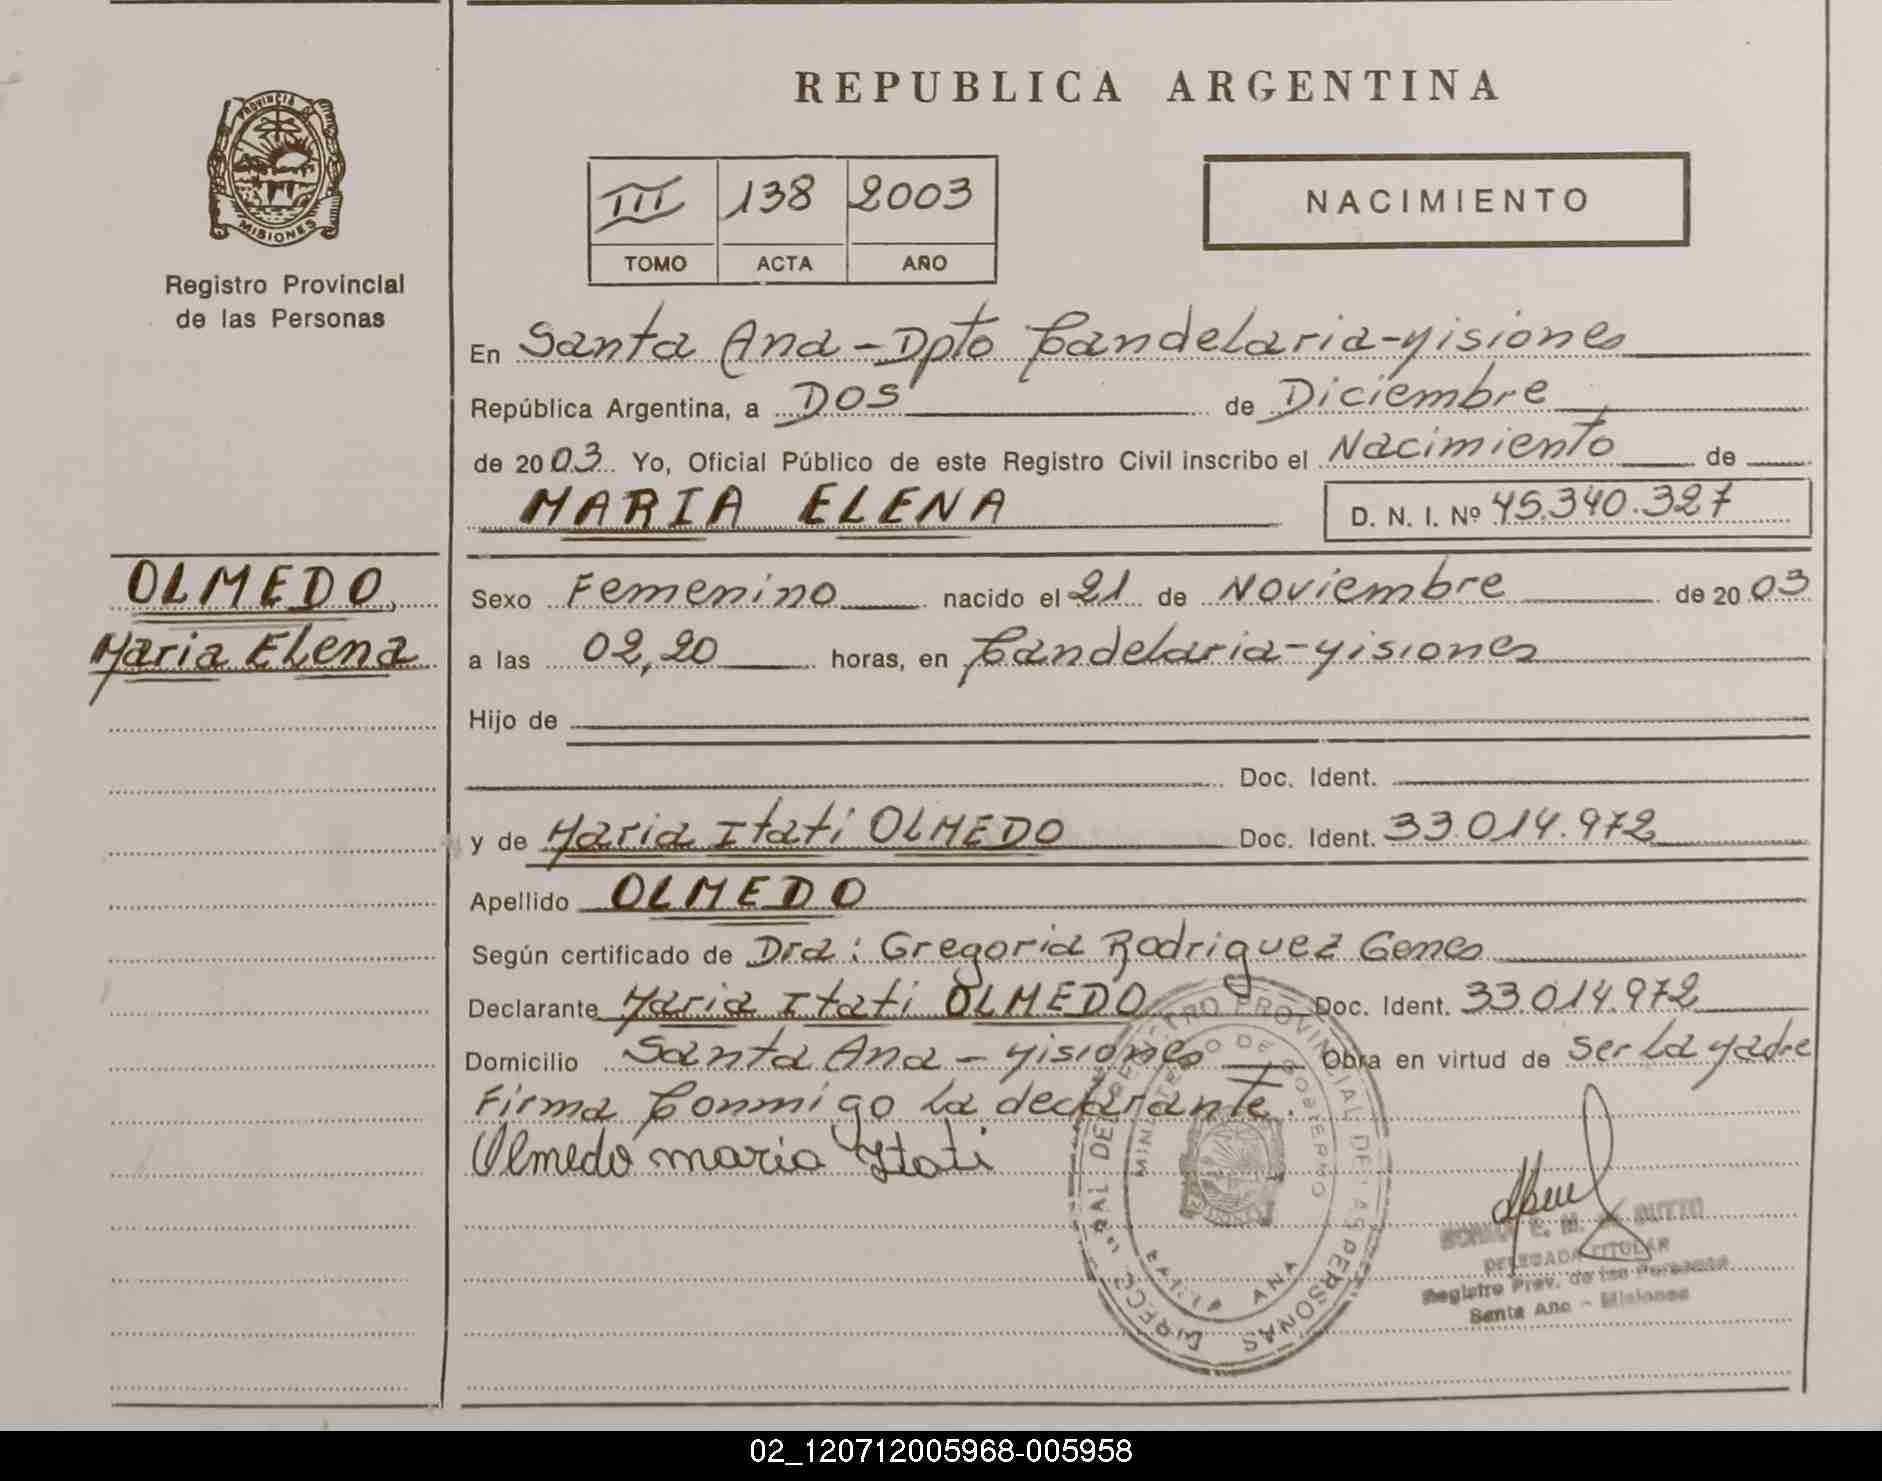 REPUBLICA ARGENTINA
PROVINCIA DE
MISIONES
Registro Provincial
de las Personas
III 138 2003
TOMO ACTA AÑO
NACIMIENTO
En Santa Ana - Dpto Candelaria - Misiones
República Argentina, a Dos de Diciembre
de 2003. Yo, Oficial Público de este Registro Civil inscribo el Nacimiento de
MARIA ELENA D. N. I. Nº 45.340.327
OLMEDO,
Maria Elena
Sexo Femenino nacido el 21 de Noviembre de 2003
a las 02,20 horas, en Candelaria - Misiones
Hijo de
Doc. Ident.
y de Maria Itati OLMEDO Doc. Ident. 33.014.972
Apellido OLMEDO
Según certificado de Dra: Gregoria Rodriguez Genes
Declarante Maria Itati OLMEDO Doc. Ident. 33.014.972
Domicilio Santa Ana - Misiones Obra en virtud de Ser La Madre
Firma Conmigo La declarante.
Olmedo maria Itati
DIRECC GRAL DE REGISTRO PROVINCIAL DE LAS PERSONAS
MINISTERIO DE GOBIERNO
SANTA ANA
E. M. DUTTO
DELEGADA TITULAR
Registro Prov. de las Personas
Santa Ana - Misiones
02_120712005968-005958